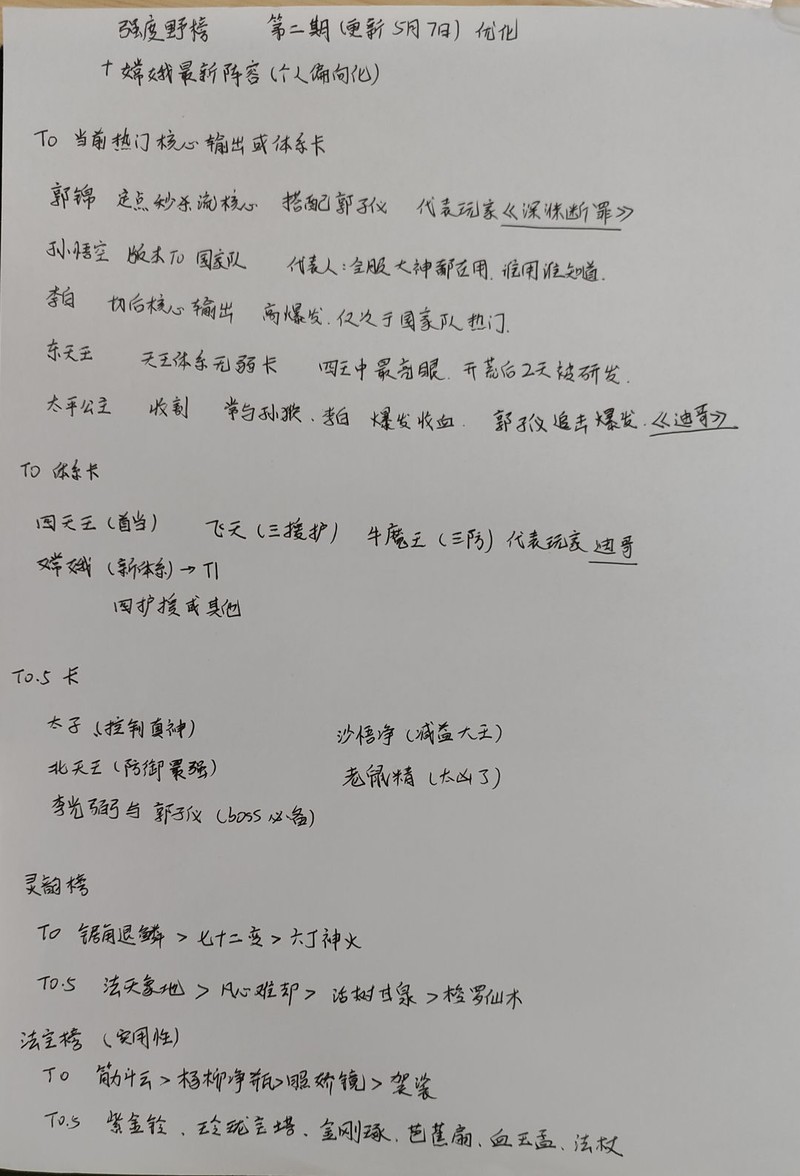 强度野榜 第二期(更新5月7日) 优化
+嫦娥最新阵容(个人偏向化)
T0 当前热门核心输出或体系卡
郭锦 定点秒杀流核心 搭配郭子仪 代表玩家《深渊断罪》
孙悟空 版本T0 国家队 代表人:全服大神都在用,谁用谁知道.
李白 切后核心输出 高爆发.仅次于国家队热门.
东天王 天王体系无弱卡 四王中最亮眼.开荒后2天被研发.
太平公主 收割 常与孙猴、李白 爆发收血. 郭子仪追击爆发.《迪哥》
T0 体系卡
四天王(首当) 飞天(三援护) 牛魔王(三防)代表玩家 迪哥
嫦娥(新体系)→T1
四护援或其他
T0.5 卡
太子(控制真神) 沙悟净(减益大王)
北天王(防御最强) 老鼠精(太凶了)
李光弼与郭子仪(boss必备)
灵韵榜
T0 锯角退鳞>七十二变>六丁神火
T0.5 法天象地>凡心难却>活树甘泉>桫罗仙木
法宝榜(实用性)
T0 筋斗云>杨柳净瓶>照娇镜>袈裟
T0.5 紫金铃、玲珑宝塔、金刚琢、芭蕉扇、血玉盂、法杖